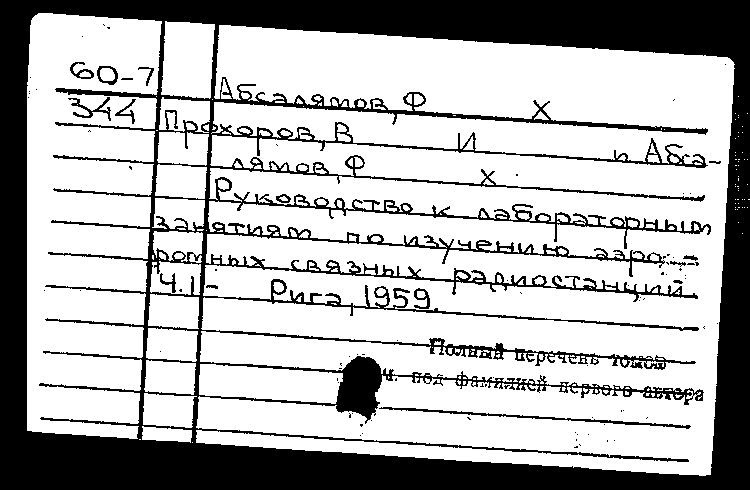 60-7
344
Абсалямов, Ф Х
Прохоров, В И и Абса-
лямов, Ф Х
Руководство к лабораторным
занятиям по изучению аэро-
ромных связных радиостанций.
Ч.1- Рига, 1959.
Полный перечень томов
ч. под фамилией первого автора